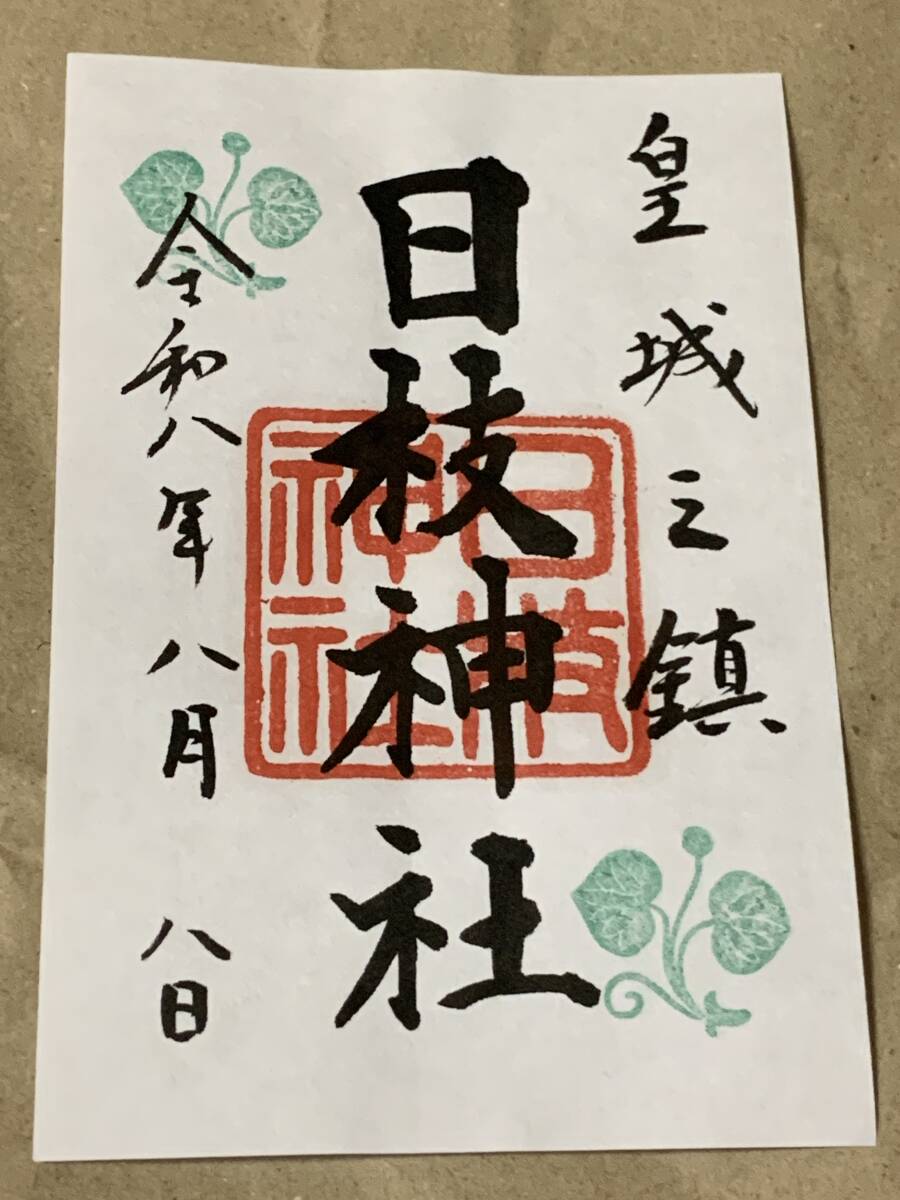 皇城之鎮
日枝神社
日枝神社
令和八年八月八日